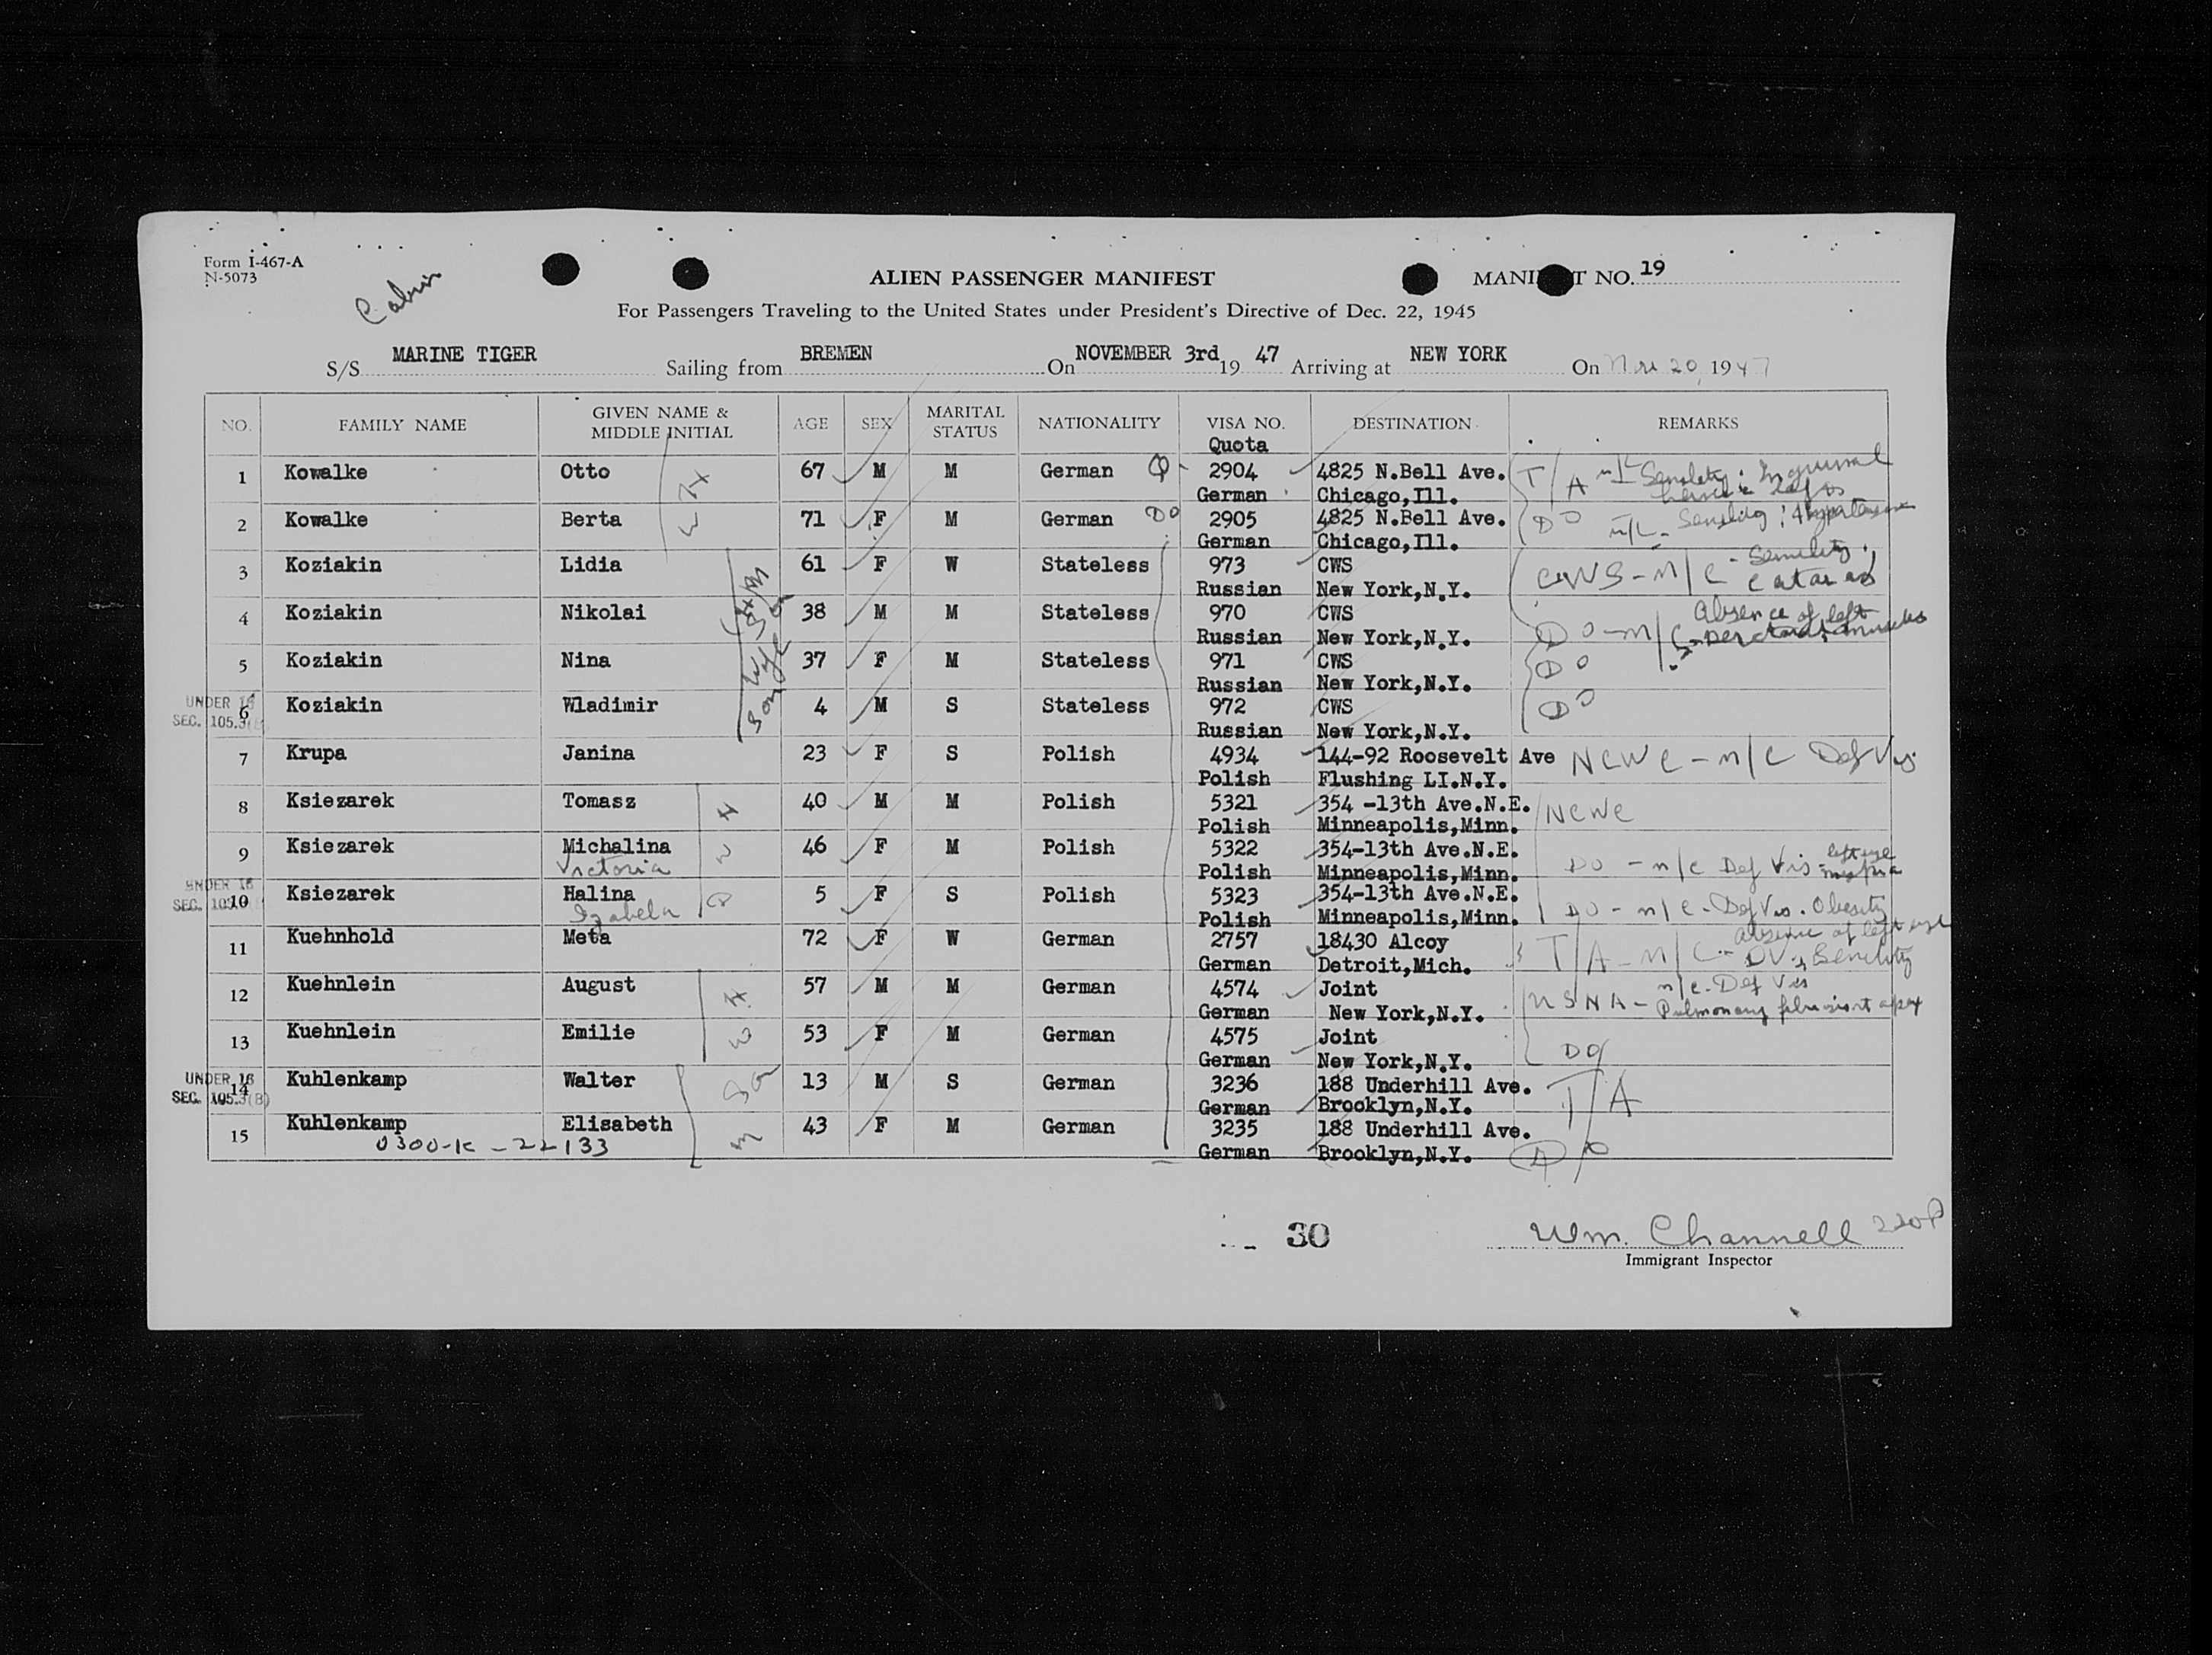 Form I-467-A
N-5073
Cabin
ALIEN PASSENGER MANIFEST
MANI T NO. 19
For Passengers Traveling to the United States under President's Directive of Dec. 22, 1945
S/S MARINE TIGER Sailing from BREMEN On NOVEMBER 3rd 19 47 Arriving at NEW YORK On 20, 1947
NO. FAMILY NAME GIVEN NAME & MIDDLE INITIAL AGE SEX MARITAL STATUS NATIONALITY VISA NO. DESTINATION REMARKS
Quota
1 Kowalke Otto 67 M M German Q- 2904 4825 N.Bell Ave. T/A
German Chicago,Ill.
2 Kowalke Berta 71 F M German DO 2905 4825 N.Bell Ave. DO
German Chicago,Ill.
3 Koziakin Lidia 61 F W Stateless 973 CWS CWS - n/c - Senility
Russian New York,N.Y.
4 Koziakin Nikolai 38 M M Stateless 970 CWS DO - n/c Absence of left
Russian New York,N.Y.
5 Koziakin Nina 37 F M Stateless 971 CWS DO
Russian New York,N.Y.
UNDER 16
SEC. 105.3(B)
6 Koziakin Wladimir 4 M S Stateless 972 CWS DO
Russian New York,N.Y.
7 Krupa Janina 23 F S Polish 4934 144-92 Roosevelt Ave NCWC - n/c Def Vis
Polish Flushing LI.N.Y.
8 Ksiezarek Tomasz H 40 M M Polish 5321 354 -13th Ave.N.E. NCWC
Polish Minneapolis,Minn.
9 Ksiezarek Michalina W 46 F M Polish 5322 354-13th Ave.N.E. DO - n/c Def Vis - left eye
Victoria Polish Minneapolis,Minn.
UNDER 16
SEC. 105.3(B)
10 Ksiezarek Halina D 5 F S Polish 5323 354-13th Ave.N.E. DO - n/c - Def Vis. Obesity
Izabela Polish Minneapolis,Minn.
11 Kuehnhold Meta 72 F W German 2757 18430 Alcoy T/A - n/c - absence of left eye
German Detroit,Mich. DV, Senility
12 Kuehnlein August H 57 M M German 4574 Joint USNA - n/c - Def Vis
German New York,N.Y. Pulmonary apex
13 Kuehnlein Emilie W 53 F M German 4575 Joint DO
German New York,N.Y.
UNDER 16
SEC. 105.3(B)
14 Kuhlenkamp Walter Son 13 M S German 3236 188 Underhill Ave. T/A
German Brooklyn,N.Y.
15 Kuhlenkamp Elisabeth M 43 F M German 3235 188 Underhill Ave. DO
0300-K-22133 German Brooklyn,N.Y.
30
Wm. Channell 220P
Immigrant Inspector